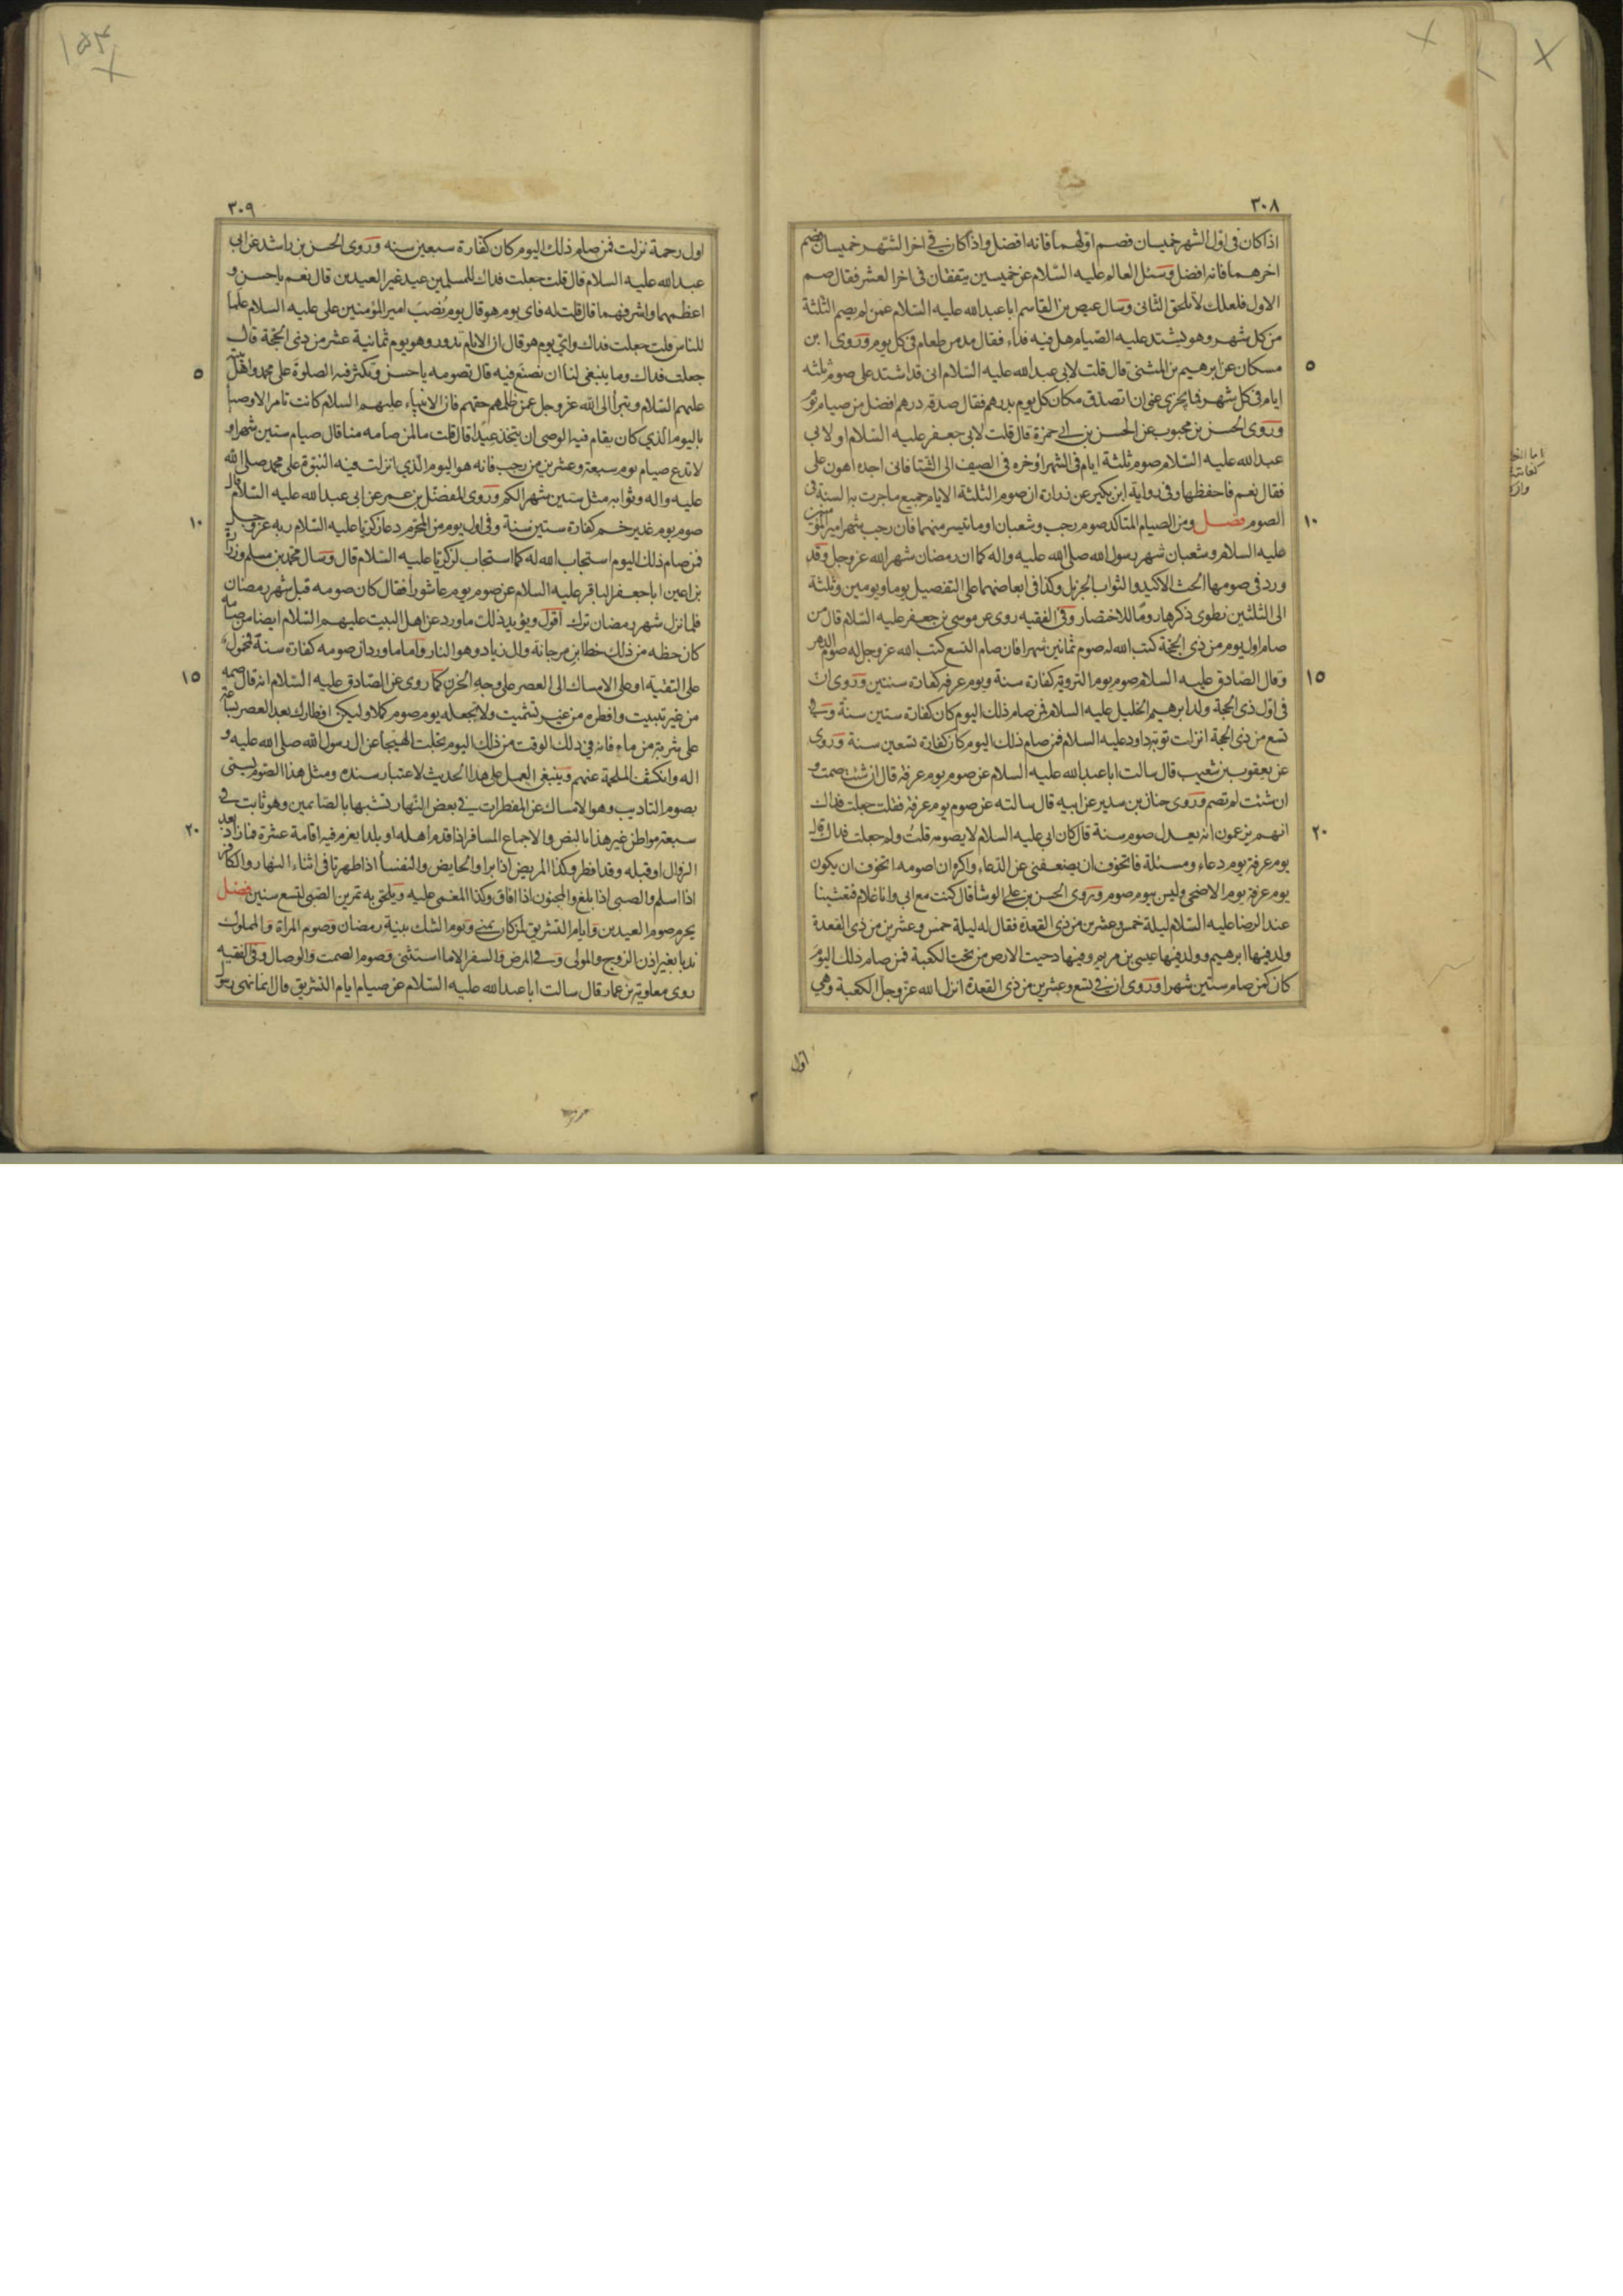 ٣٠٨
اذا كان فى اوّل الشهر خميسان فصم اوّلهما فانه افضل واذا كان فى اخر الشهر خميسان فصم
اخرهما فانه افضل وسئل العالم عليه السّلام عن خميسين يتفقان فى اخر العشر فقال صم
الاول فلعلك لا تلحق الثانى وسال عيص بن القاسم ابا عبد الله عليه السّلام عمن لم يصم الثلثة
من كل شهر وهو يشتد عليه الصّيام هل فيه فداء فقال مد من طعام فى كل يوم وروى ابن
٥
مسكان عن ابرهيم بن المثنى قال قلت لابى عبد الله عليه السّلام انى قد اشتد على صوم ثلثه
ايام فى كل شهر فما يجزى عنى ان اتصدق مكان كل يوم بدرهم فقال صدقه درهم افضل من صيام يوم
وروى الحسن بن محبوب عن الحسن بن ابى حمزة قال قلت لابى جعفر عليه السّلام او لابى
عبد الله عليه السّلام صوم ثلثة ايام فى الشهر اوخره فى الصيف الى الشتا فانى اجده اهون على
فقال نعم فاحفظها وفى رواية ابن بكير عن زرارة ان صوم الثلثة الايام جميع ما جرت به السنة فى
١٠
الصوم فصل ومن الصيام المتاكد صوم رجب وشعبان او ما تيسر منهما فان رجب شهر امير المؤمنين
عليه السلام وشعبان شهر رسول الله صلى الله عليه واله كما ان رمضان شهر الله عز وجل وقد
ورد فى صومها الحث الاكيد والثواب الجزيل وكذا فى ابعاضهما على التفصيل يوما ويومين وثلثة
الى الثلثين نطوى ذكرها روما للاختصار وفى الفقيه روى عن موسى بن جعفر عليه السّلام قال من
صام اول يوم من ذى الحجة كتب الله له صوم ثمانين شهرا فان صام التسع كتب الله عز وجل له صوم الدهر
١٥
وقال الصّادق عليه السلام صوم يوم التروية كفارة سنة ويوم عرفه كفارة سنتين وروى ان
فى اوّل ذى الحجة ولد ابرهيم الخليل عليه السلام فمن صام ذلك اليوم كان كفارة ستين سنة وفى
تسع من ذى الحجة انزلت توبة داود عليه السلام فمن صام ذلك اليوم كان كفارة تسعين سنة وروى
عن يعقوب بن شعيب قال سالت ابا عبد الله عليه السلام عن صوم يوم عرفه قال ان شئت صمت و
ان شئت لم تصم وروى حنان بن سدير عن ابيه قال سالته عن صوم يوم عرفه فقلت جعلت فداك
٢٠
انهم يزعمون انه يعدل صوم سنة قال كان ابى عليه السلام لا يصومه قلت ولم جعلت فداك قال
يوم عرفة يوم دعاء ومسئلة فاتخوف ان يضعفنى عن الدّعاء واكره ان اصومه اتخوف ان يكون
يوم عرفة يوم الاضحى وليس بيوم صوم وروى الحسن بن على الوشا قال كنت مع ابى وانا غلام فتعشينا
عند الرضا عليه السّلام ليلة خمس وعشرين من ذى القعدة فقال له ليلة خمس وعشرين من ذى القعدة
ولد فيها ابرهيم وولد فيها عيسى بن مريم وفيها دحيت الارض من تحت الكعبة فمن صام ذلك اليوم
كان كمن صام ستين شهرا وروى ان فى تسع وعشرين من ذى القعدة انزل الله عز وجل الكعبة وهى
اوّل
١٥٤
٣٠٩
اول رحمة نزلت فمن صام ذلك اليوم كان كفارة سبعين سنه وروى الحسن بن راشد عن ابى
عبد الله عليه السلام قال قلت جعلت فداك للمسلمين عيد غير العيدين قال نعم يا حسن و
اعظمهما واشرفهما قال قلت له فاى يوم هو قال يوم نُصب امير المؤمنين على عليه السلام علما
للناس قلت جعلت فداك واىّ يوم هو قال ان الايام تدور وهو يوم ثمانية عشر من ذى الحجة قال
٥
جعلت فداك وما ينبغى لنا ان نصنع فيه قال تصومه يا حسن وتكثر فيه الصلوة على محمد واهل بيته
عليهم السّلام وتبرأ الى الله عز وجل عمن ظلمهم حقهم فان الانبياء عليهم السلام كانت تامر الاوصيا
باليوم الّذي كان يقام فيه الوصى ان يتخذ عيدًا قال قلت ما لمن صامه منا قال صيام ستين شهرا و
لا تدع صيام يوم سبعة وعشرين من رجب فانه هو اليوم الّذي انزلت فيه النبوّة على محمد صلى الله
عليه واله وثوابه مثل ستين شهرا لكم وروى المفضل بن عمر عن ابى عبد الله عليه السّلام قال
١٠
صوم يوم غدير خم كفارة ستين سنة وفى اول يوم من المحرّم دعا زكريا عليه السّلام ربه عز وجل
فمن صام ذلك اليوم استجاب الله له كما استجاب لزكريا عليه السّلام قال وسال محمد بن مسلم وزرارة
بن اعين ابا جعفر الباقر عليه السلام عن صوم يوم عاشورا فقال كان صومه قبل شهر رمضان
فلما نزل شهر رمضان ترك اقول ويؤيد ذلك ما ورد عن اهل البيت عليهم السّلام ايضا من صامه
كان حظه من ذلك حظ ابن مرجانة وال زياد وهو النار واما ما ورد ان صومه كفارة سنة فمحمول
١٥
على التقية او على الامساك الى العصر على وجه الحزن كما روى عن الصّادق عليه السّلام انه قال صمه
من غير تبييت وافطره من غير تشميت ولا تجعله يوم صوم كملا وليكن افطارك بعد العصر بساعة
على شربة من ماء فانه فى ذلك الوقت من ذلك اليوم تجلت الهيجا عن ال رسول الله صلى الله عليه و
اله وانكشف الملحمة عنهم وينبغى العمل على هذا الحديث لاعتبار سنده ومثل هذا الصّوم يسمّى
بصوم التاديب وهو الامساك عن المفطرات فى بعض النّهار تشبها بالصّائمين وهو ثابت فى
٢٠
سبعة مواطن غير هذا بالنص والاجماع المسافر اذا قدم اهله او بلدا يعزم فيه اقامة عشرة فما زاد بعد
الزوال او قبله وقد افطر وكذا المريض اذا برا والحايض والنفسا اذا طهرتا فى اثناء النهار والكافر
اذا اسلم والصبى اذا بلغ والمجنون اذا افاق وكذا المغمى عليه ويلحق به تمرين الصّبى لتسع سنين فصل
يحرم صوم العيدين وايام التشريق لمن كان بمنى ويوم الشك بنية رمضان وصوم المراة والمملوك
ندبا بغير اذن الزوج والمولى وفى المرض والسفر الا ما استثنى وصوم الصمت والوصال وفى الفقيه
روى معاوية بن عمار قال سالت ابا عبد الله عليه السّلام عن صيام ايام التشريق قال انما نهى رسول